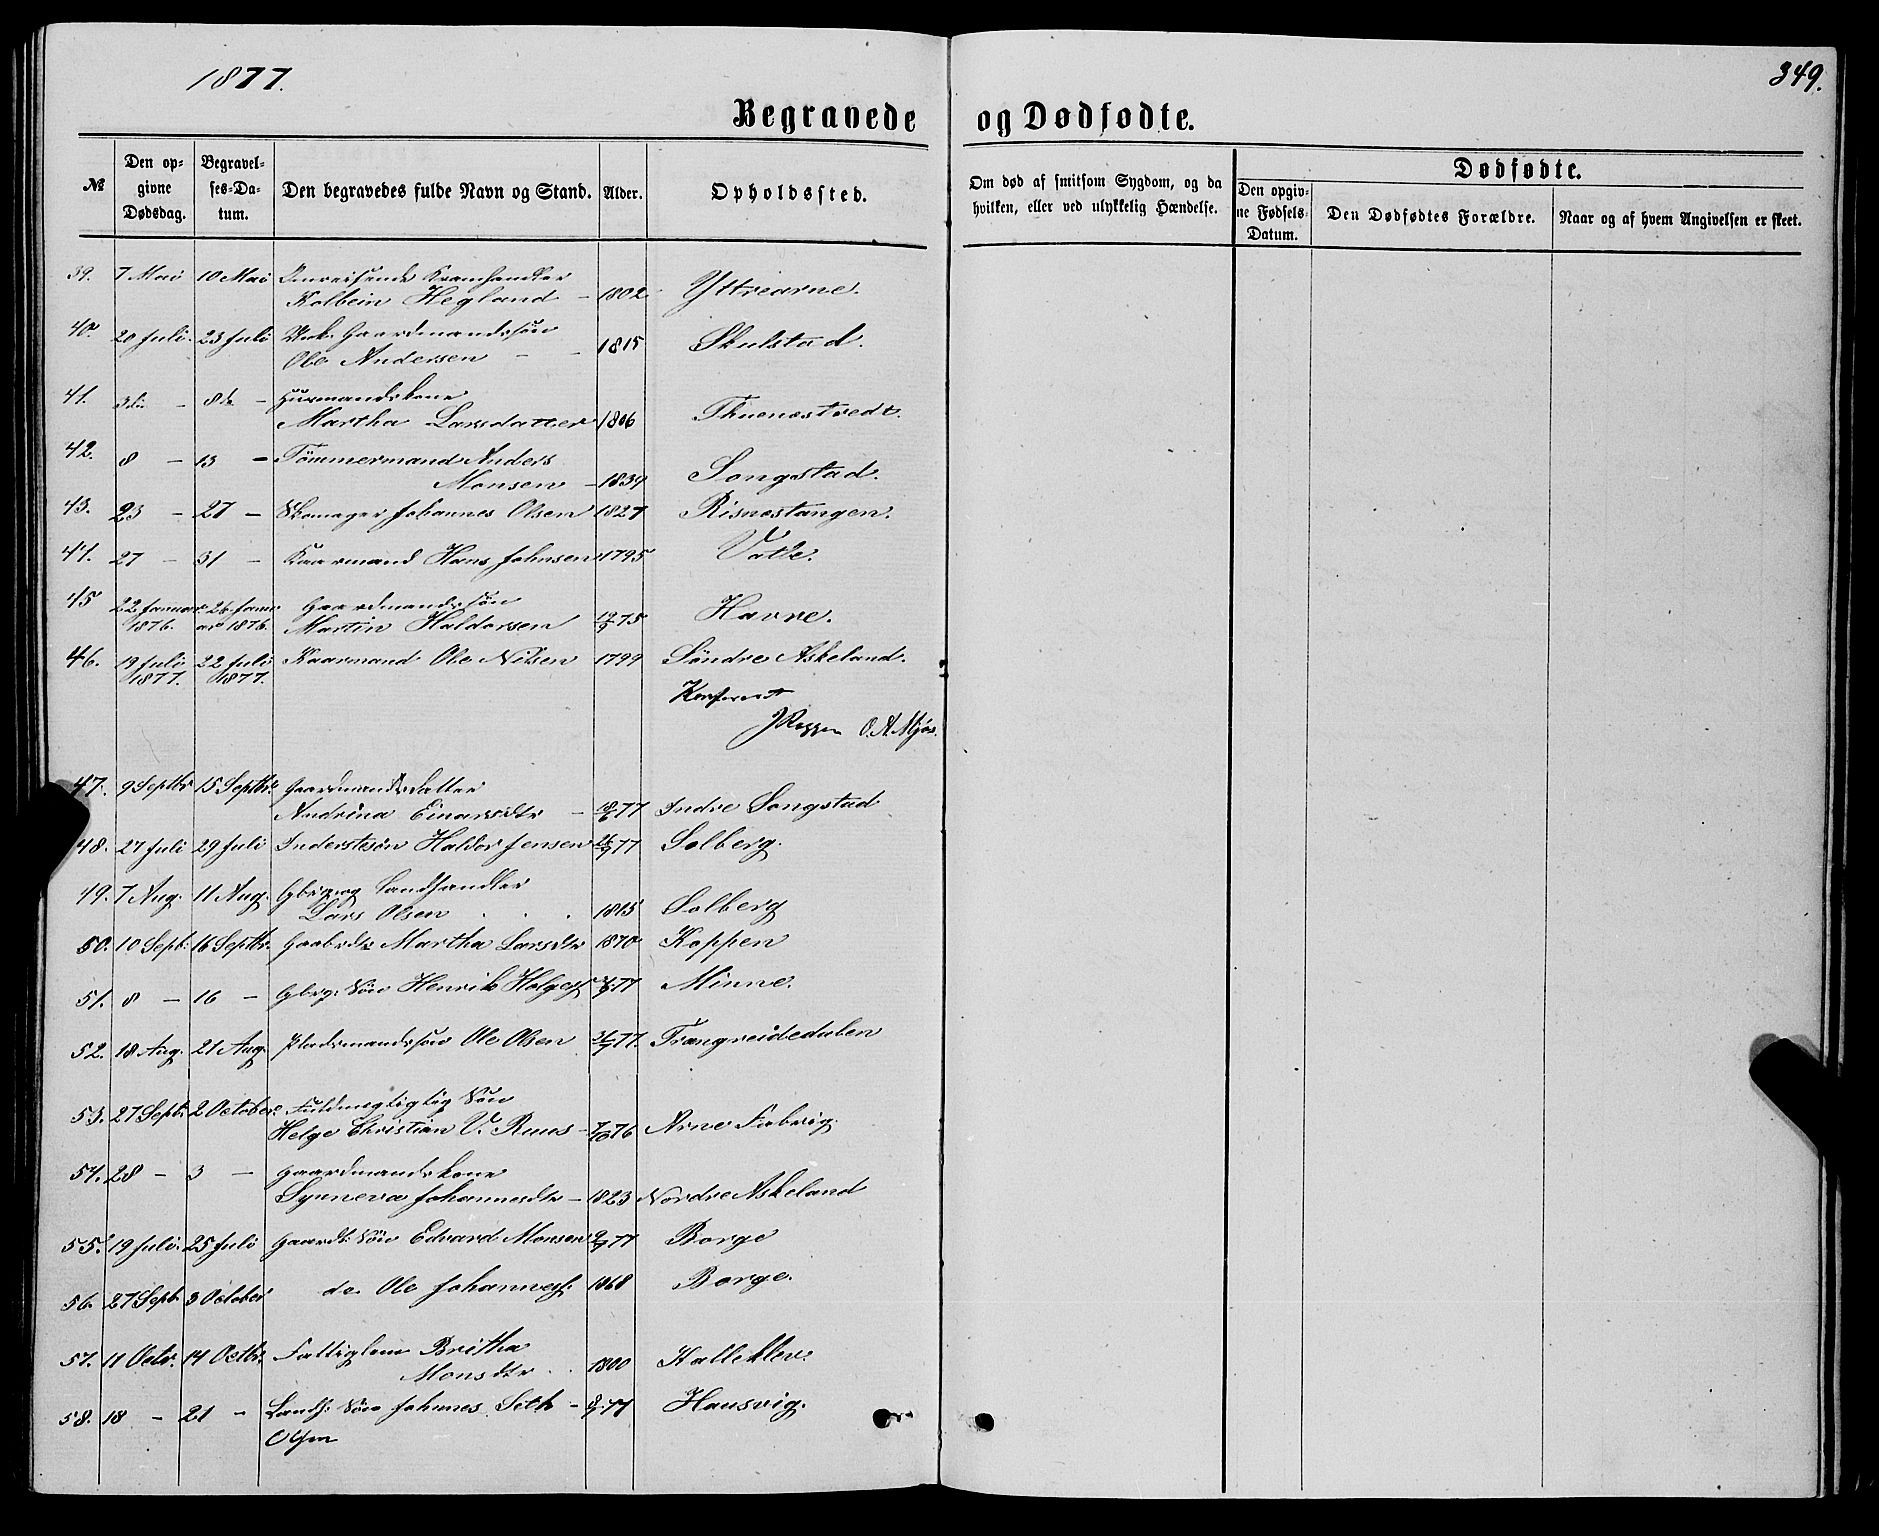 1877.
349.
Begravede og Dødfødte.
№
Den opgivne Dødsdag.
Begravelses-Datum.
Den begravedes fulde Navn og Stand.
Alder.
Opholdssted.
Om død af smitsom Sygdom, og da hvilken, eller ved ulykkelig Hændelse.
Dødfødte.
Den opgivne Fødsels-Datum.
Den Dødfødtes Forældre.
Naar og af hvem Angivelsen er skeet.
39. 7 Mai 10 Mai Omreisende Kramhandler
Kolbein Hegland – 1802 Yttrearne.
40. 20 Juli 23 Juli Gaardmandssøn
Ole Andersen – – 1815 Skulstad.
41. 3die – 8de – Husmandskone
Martha Larsdatter 1806 Thunestvedt.
42. 8 – 13 – Tømmermand Anders
Monsen – 1839 Songstad.
43. 23 – 27 – Skomager Johannes Olsen 1827 Risnestangen.
44. 27 – 31 – Kaarmand Hans Johnsen 1795 Vatle.
45 22 Januar 1876. 26 Januar 1876. Gaardmandssøn
Martin Haldorsen 75 Havre.
46. 19 Juli 1877. 22 Juli 1877. Kaarmand Ole Nilsen 1799 Søndre Askeland.
Konfereret
O. A. Mjøs.
47. 9 Septbr 15 Septbr. Gaardmandsdatter
Andrina Einarsdtr – 77 Indre Songstad
48. 27 Juli 29 Juli Inderstesøn Haldor Jensen 77 Solberg.
49. 7 Aug. 11 Aug. Gbr. og Landhandler
Lars Olsen . . . 1815 Solberg
50. 10 Septb. 16 Septbr. Martha Larsdtr 1870 Koppen
51. 8 – 16 – Gbrg. Søn Henrik Helges. 77 Minne.
52. 18 Aug. 21 Aug. Pladsmandssøn Ole Olsen 77. Trængreidedalen
53. 27 Septb. 2 October Fuldmegtigtig Søn
Helge Christian V. Ruus – 76 Arne Fabrig.
54. 28 – 3 – Gaardmandskone
Synneva Johannesdtr – 1823 Nordre Askeland
55. 19 Juli. 25 Juli Gaardb. Søn Edvard Monsen 77 Borge
56. 27 Septb. 3 October do. Ole Johanness. 1868 Borge.
57. 11 Octr. 14 Octbr. Fattiglem Britha
Monsdtr . . 1800 Halleklev.
58. 18 – 21 – Landh. Søn Johnnes Seth – 77 Hausvig.
Olsen